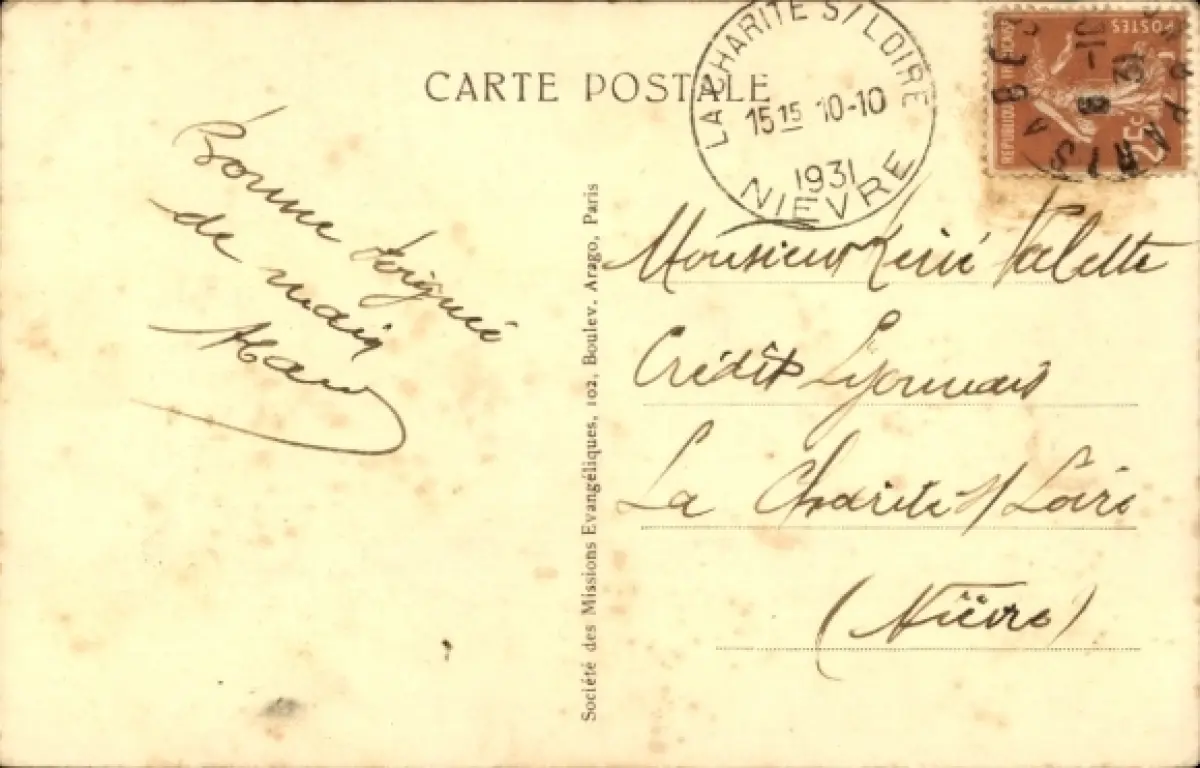 CARTE POSTALE
LA CHARITE S/ LOIRE
15 15 10-10
1931
NIEVRE
REPUBLIQUE FRANÇAISE
POSTES
25c
PARIS
Bonne poignée
de main
Société des Missions Evangéliques, 102, Boulev. Arago, Paris
Monsieur René Valette
Crédit Lyonnais
La Charité s/ Loire
(Nièvre)